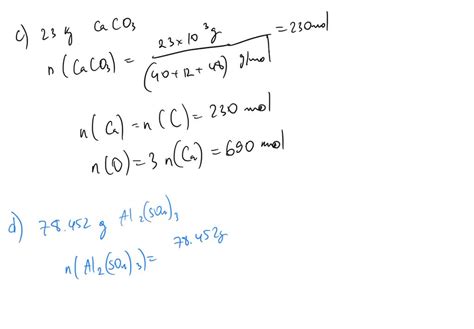 c) 23 kg CaCO3
n(CaCO3) = 23×10^3 g / (40+12+48) g/mol = 230 mol
n(Ca) = n(C) = 230 mol
n(O) = 3 n(Ca) = 690 mol
d) 78.452 g Al2(SO4)3
n(Al2(SO4)3) = 78.452 g